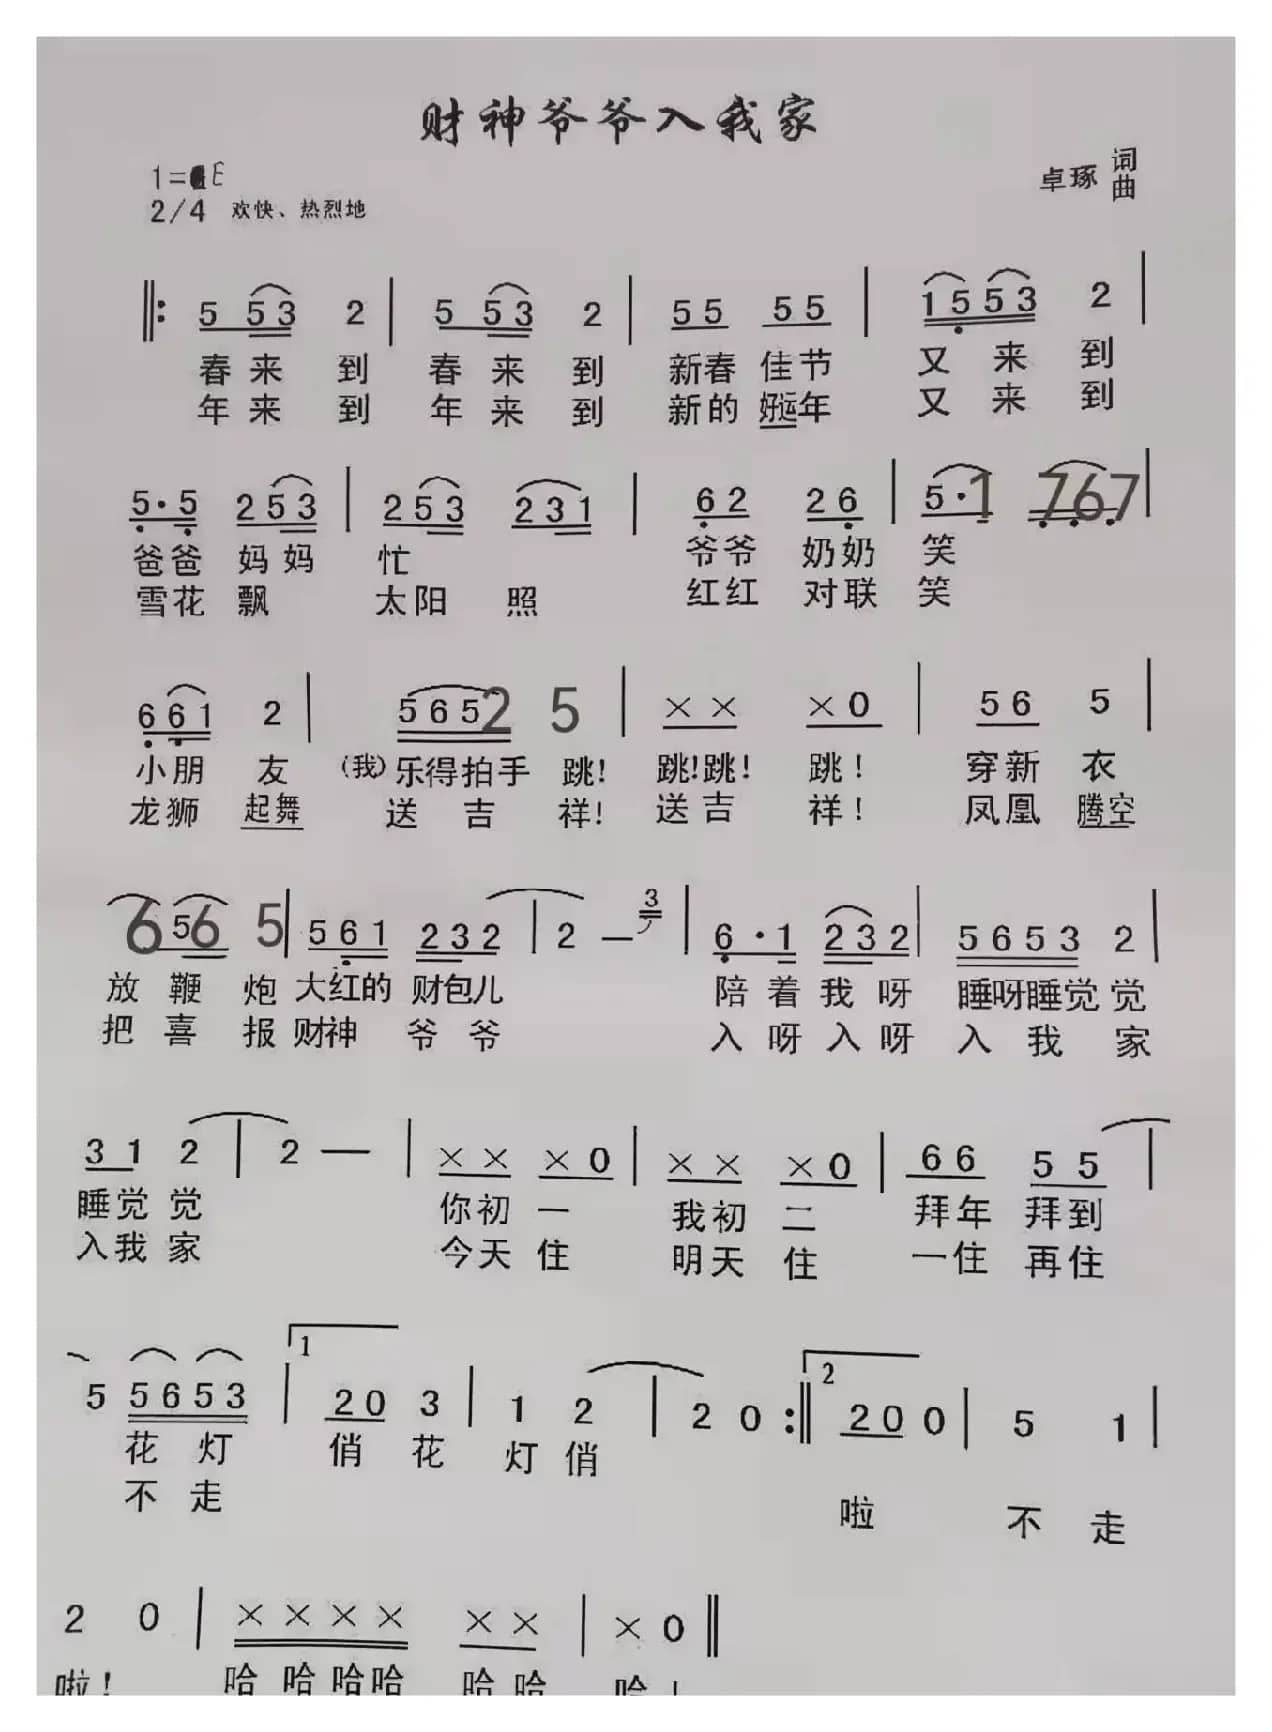 财神爷爷入我家
1=E
2/4 欢快、热烈地
卓琢 词
曲
5 5 3 2 | 5 5 3 2 | 5 5 5 5 | 1 5 5 3 2 |
春来到 春来到 新春佳节 又来到
年来到 年来到 新的好运年 又来到
5·5 2 5 3 | 2 5 3 2 3 1 | 6 2 2 6 | 5·1 7 6 7 |
爸爸妈妈 忙 爷爷奶奶 笑
雪花飘 太阳照 红红对联 笑
6 6 1 2 | 5 6 5 2 5 | × × × 0 | 5 6 5 |
小朋友 (我)乐得拍手跳! 跳!跳! 跳! 穿新衣
龙狮起舞 送吉祥! 送吉祥! 凤凰腾空
6 5 6 5 | 5 6 1 2 3 2 | 2 — 3 | 6·1 2 3 2 | 5 6 5 3 2 |
放鞭炮 大红的 财包儿 陪着我呀 睡呀睡觉觉
把喜报 财神爷爷 入呀入呀 入我家
3 1 2 | 2 — | × × × 0 | × × × 0 | 6 6 5 5 |
睡觉觉 你初一 我初二 拜年拜到
入我家 今天住 明天住 一住再住
1 2
5 5 6 5 3 | 2 0 3 | 1 2 | 2 0 :‖ 2 0 0 | 5 1 |
花灯 俏花 灯俏
不走 啦 不走
2 0 | × × × × × × | × 0 ‖
啦! 哈哈哈哈 哈哈 哈!